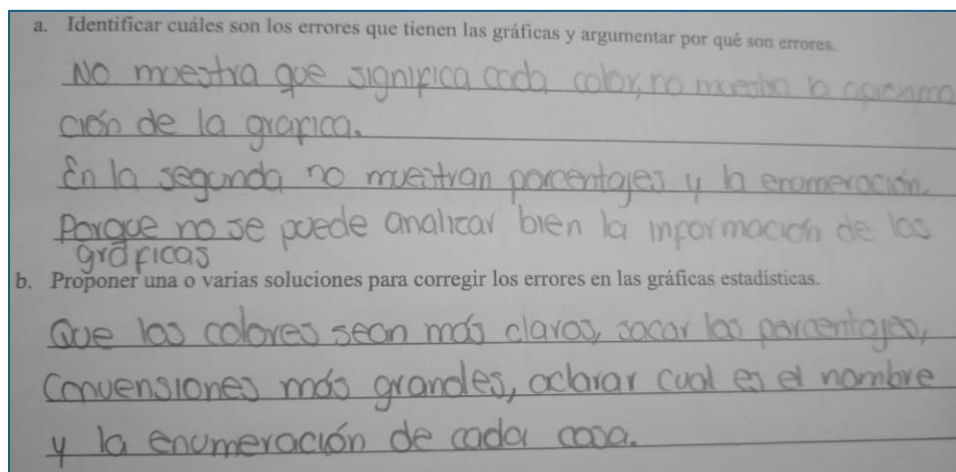 a. Identificar cuáles son los errores que tienen las gráficas y argumentar por qué son errores.
No muestra que significa cada color, no muestra la
ción de la grafica.
En la segunda no muestran porcentajes y la enomeración.
Porque no se puede analicar bien la información de las
gráficas
b. Proponer una o varias soluciones para corregir los errores en las gráficas estadísticas.
Que los colores sean más claros, sacar los porcentajes,
Convensiones más grandes, aclarar cual es el nombre
y la enumeración de cada cosa.